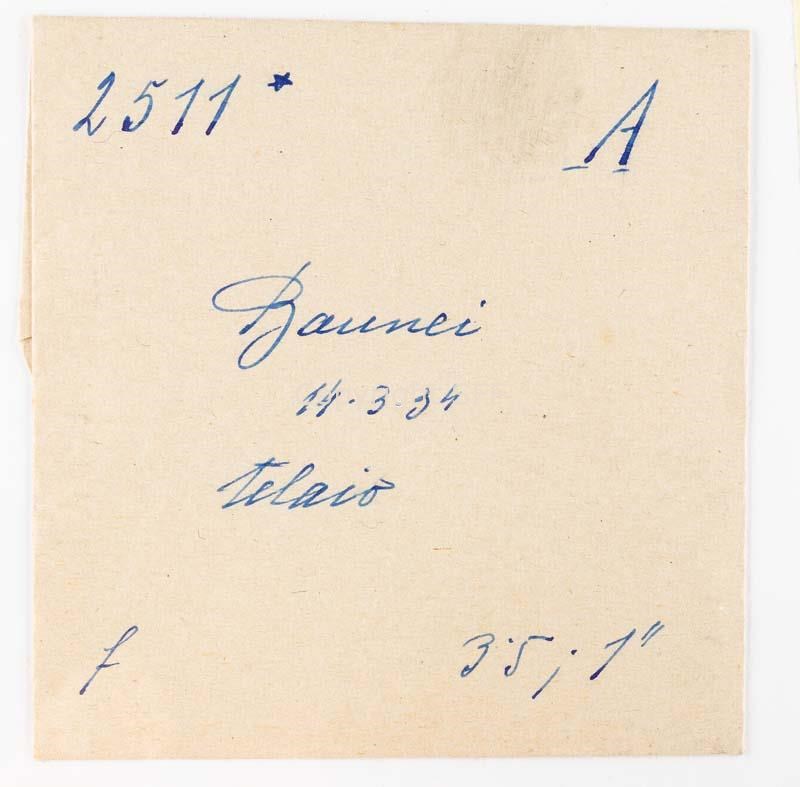 2511* A
Baunei
14-3-34
telaio
f 3·5; 1"